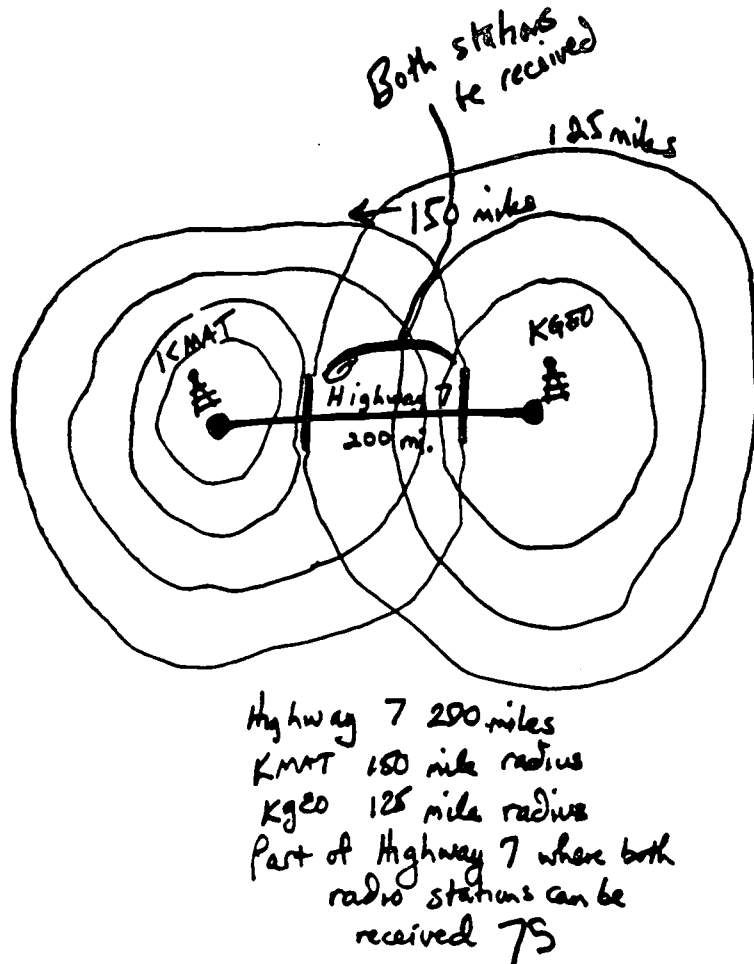 Both stations
be received
125 miles
← 150 miles
KMAT
KGEO
Highway 7
200 mi.
Highway 7 200 miles
KMAT 150 mile radius
KgEO 125 mile radius
Part of Highway 7 where both
radio stations can be
received 75